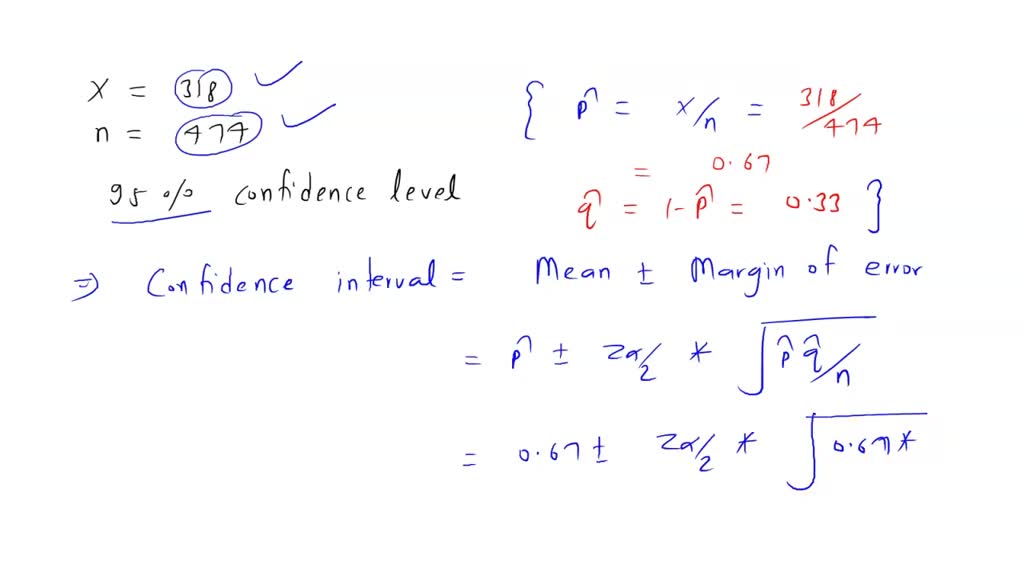 x = 318
n = 474
95 % confidence level
{ p̂ = x/n = 318/474
= 0.67
q̂ = 1-p̂ = 0.33 }
⇒ Confidence interval = Mean ± Margin of error
= p̂ ± Zα/2 * √p̂ q̂/n
= 0.67 ± Zα/2 * √0.67*